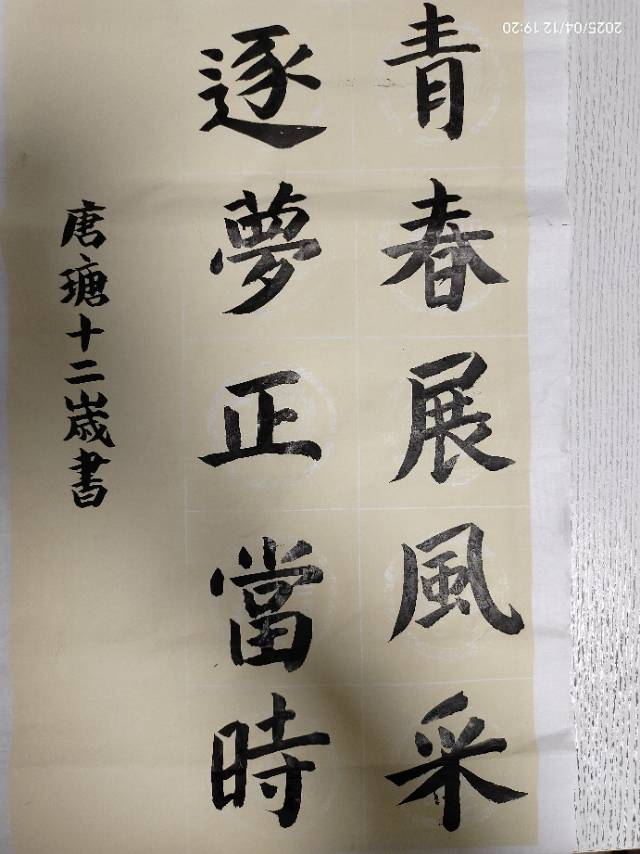 青春展風采
逐夢正當時
唐瑭十二歲書
2025/04/12 19:20